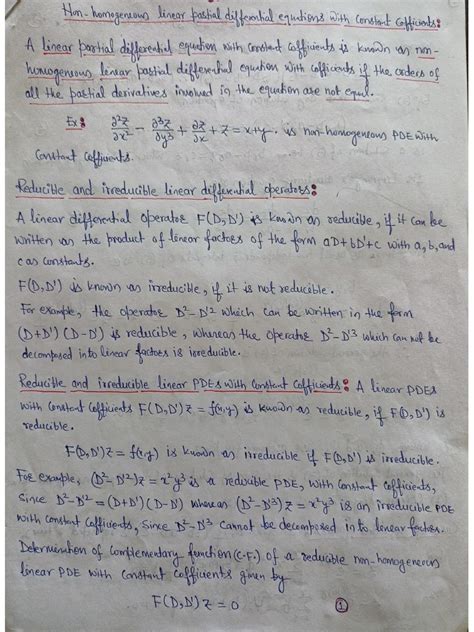 Non-homogeneous linear partial differential equations with constant Coefficients:
A linear partial differential equation with constant Coefficients is known as non-
homogeneous linear partial differential equation with coefficients if the orders of
all the partial derivatives involved in the equation are not equal.
Ex: ∂²z/∂x² - ∂³z/∂y³ + ∂z/∂x + z = x+y. is non-homogeneous PDE with
Constant Coefficients.
Reducible and irreducible linear differential operators:
A linear differential operator F(D,D') is known as reducible, if it can be
written as the product of linear factors of the form aD+bD'+c with a, b, and
c as constants.
F(D,D') is known as irreducible, if it is not reducible.
For example, the operator D²-D'² which can be written in the form
(D+D') (D-D') is reducible, whereas the operator D²-D'³ which can not be
decomposed into linear factors is irreducible.
Reducible and irreducible linear PDEs with Constant Coefficients: A linear PDEs
with constant Coefficients F(D,D')z = f(x,y) is known as reducible, if F(D,D') is
reducible.
F(D,D')z = f(x,y) is known as irreducible if F(D,D') is irreducible.
For example, (D²-D'²)z = x²y³ is a reducible PDE, with constant Coefficients,
Since D²-D'² = (D+D') (D-D') whereas (D²-D'³)z = x²y³ is an irreducible PDE
with constant Coefficients, since D²-D'³ cannot be decomposed into linear factors.
Determination of complementary function (C.F.) of a reducible non-homogeneous
linear PDE with constant Coefficients given by
F(D,D')z = 0 1